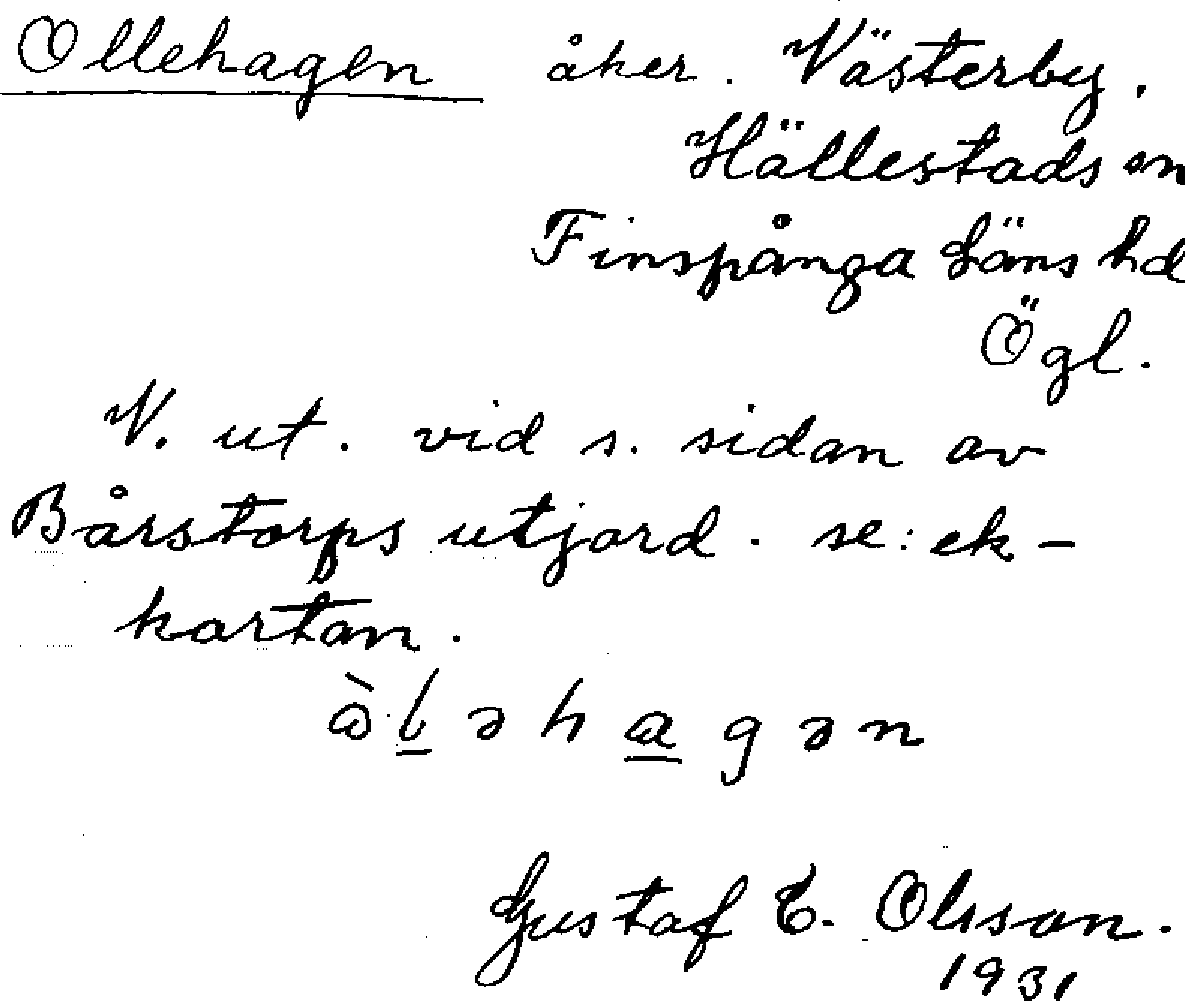 Ollehagen åker. Västerby.
Hällestads sn
Finspånga läns hd
Ögl.
N. ut. vid s. sidan av
Bårstorps utjord. se: ek-
kartan.
gən
Gustaf E. Olsson.
1931